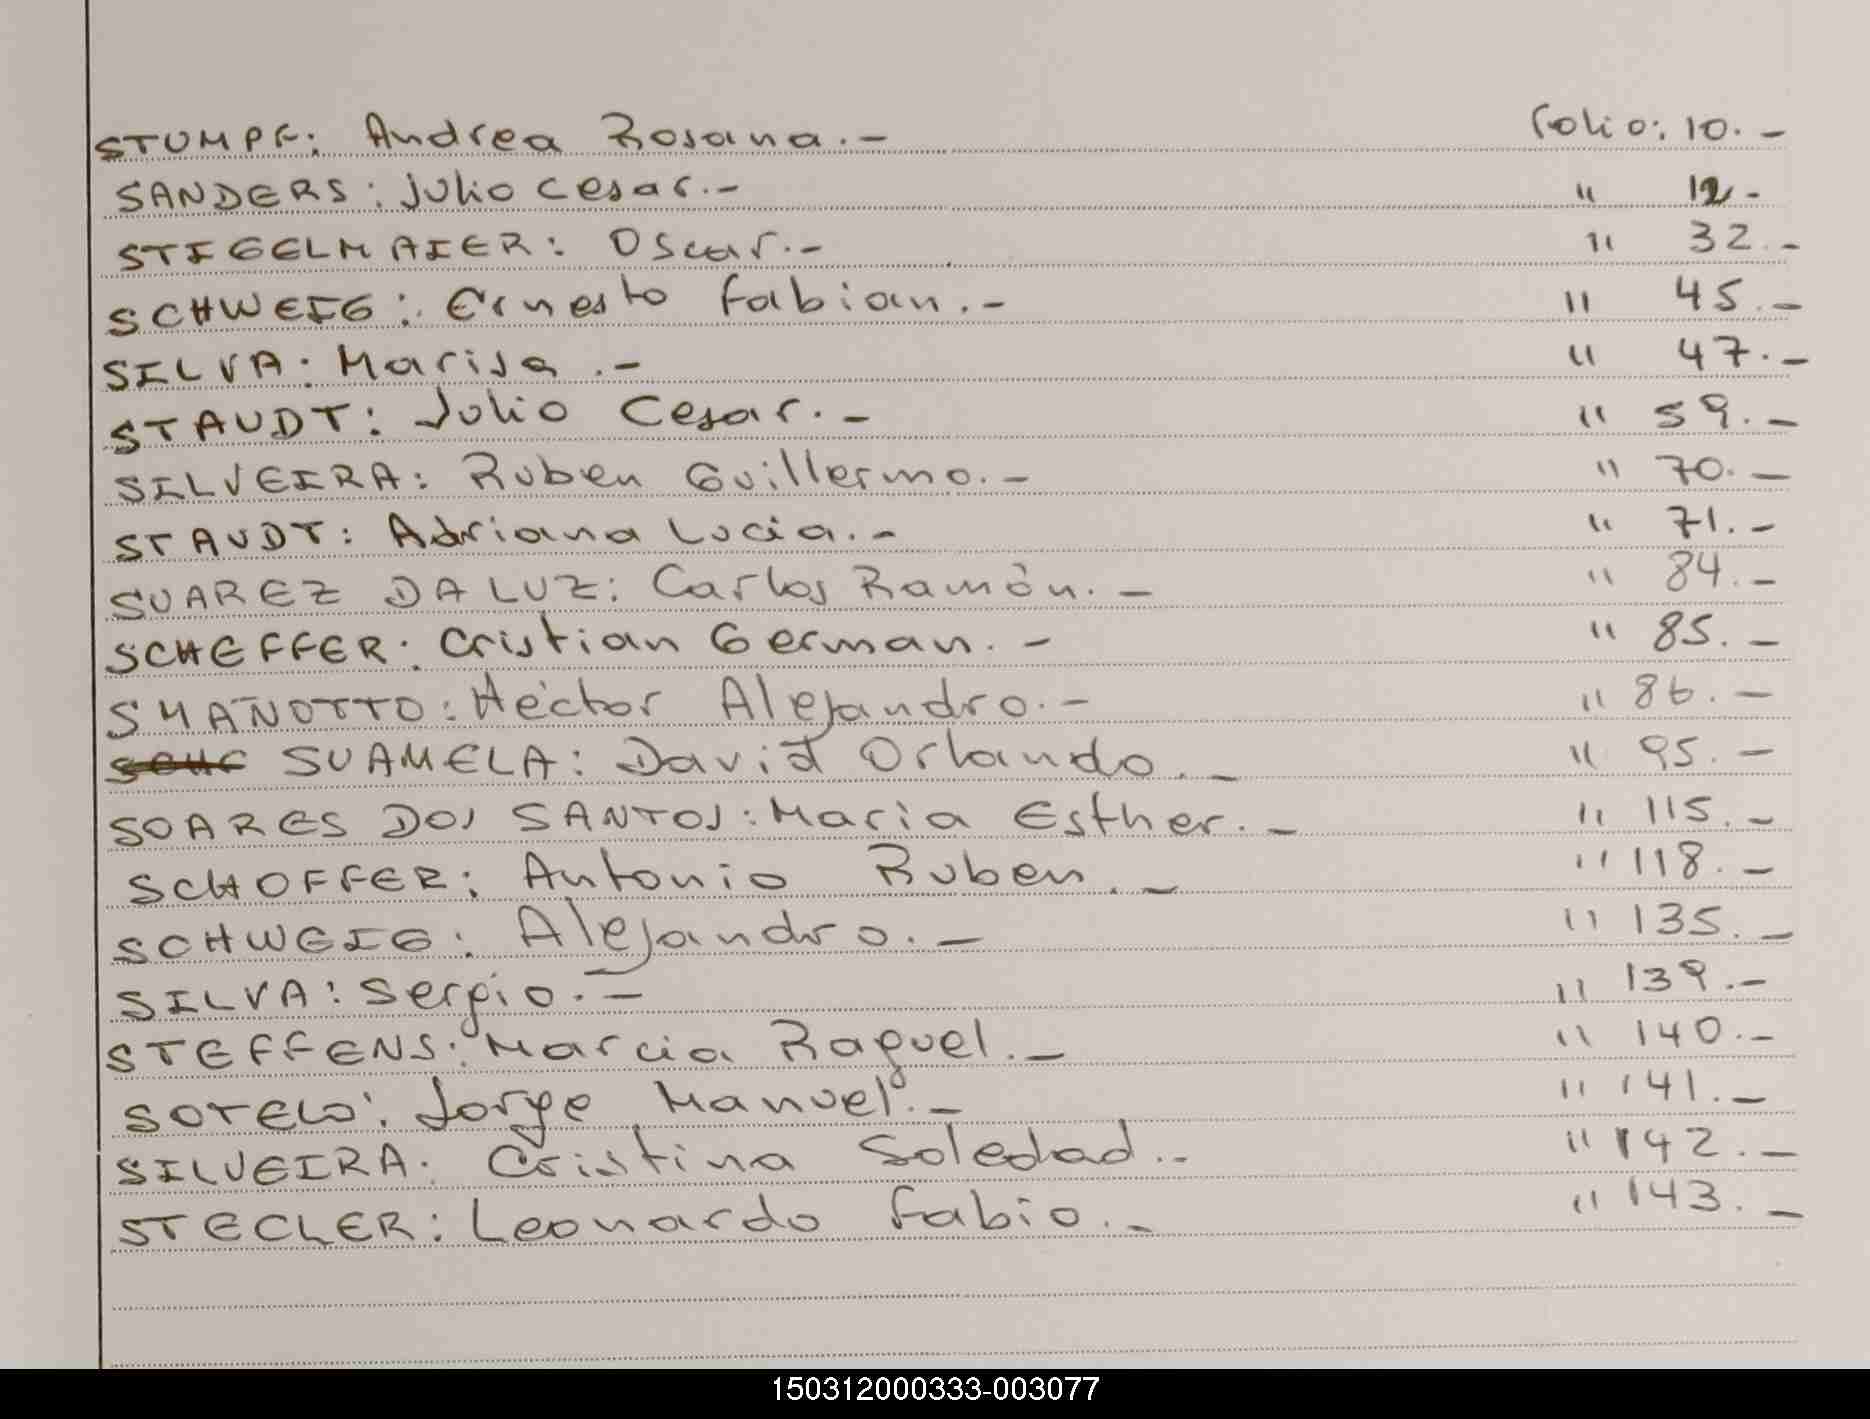 STUMPF: Andrea Rosana.- folio: 10.-
SANDERS: Julio Cesar.- " 12.-
STIGELMAIER: Oscar.- " 32.-
SCHWEIG: Ernesto Fabian.- " 45.-
SILVA: Marisa.- " 47.-
STAUDT: Julio Cesar.- " 59.-
SILVEIRA: Ruben Guillermo.- " 70.-
STAUDT: Adriana Lucia.- " 71.-
SUAREZ DA LUZ: Carlos Ramón.- " 84.-
SCHEFFER: Cristian German.- " 85.-
SMAÑOTTO: Héctor Alejandro.- " 86.-
SUAMELA: David Orlando.- " 95.-
SOARES DOS SANTOS: Maria Esther.- " 115.-
SCHOFFER: Antonio Ruben.- " 118.-
SCHWEIG: Alejandro.- " 135.-
SILVA: Sergio.- " 139.-
STEFFENS: Marcia Raquel.- " 140.-
SOTELO: Jorge Manuel.- " 141.-
SILVEIRA: Cristina Soledad.- " 142.-
STECLER: Leonardo Fabio.- " 143.-
150312000333-003077